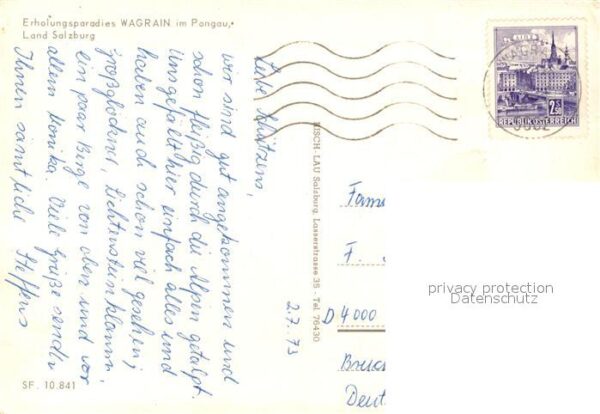 Erholungsparadies WAGRAIN im Pongau,
Land Salzburg
Liebe
wir sind gut angekommen und
schon fleißig durch die Alpen getapst.
Uns gefällt hier einfach alles und
haben auch schon viel gesehen;
Großglockner, Lichtensteinklamm,
ein paar Berge von oben und vor
allem Monika. Viele Grüße senden
Ihnen sämtliche Steffens
2.7.73
RISCH-LAU Salzburg, Lasserstrasse 35 - Tel. 76430
REPUBLIK ÖSTERREICH
Fam
F.
D 4000
privacy protection
Datenschutz
SF. 10.841